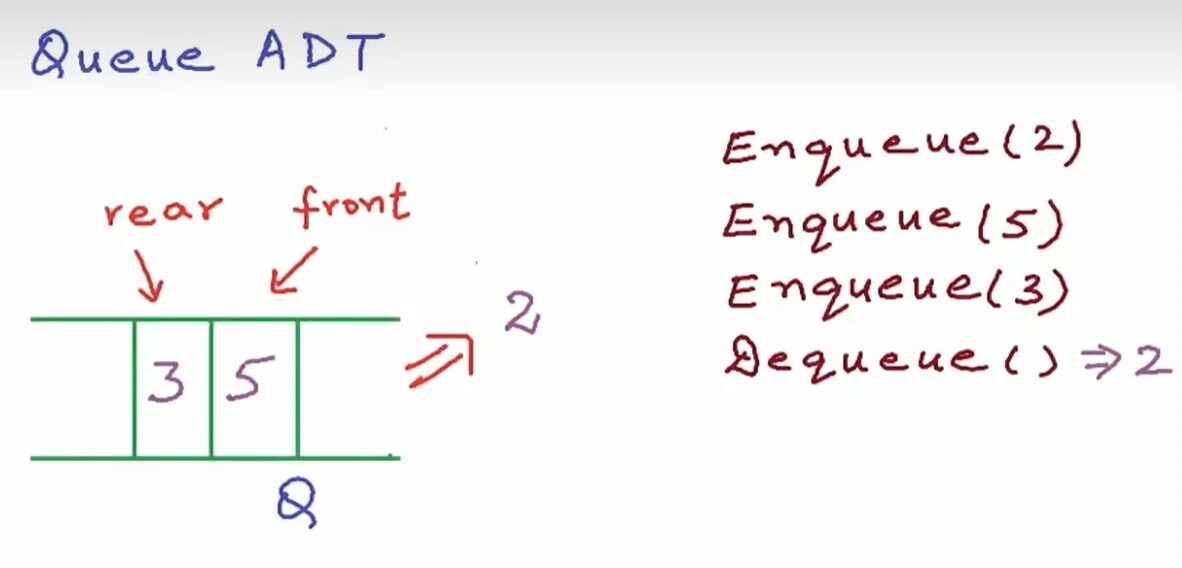 Queue ADT
rear front
3 5
2
Q
Enqueue(2)
Enqueue(5)
Enqueue(3)
Dequeue() ⇒ 2